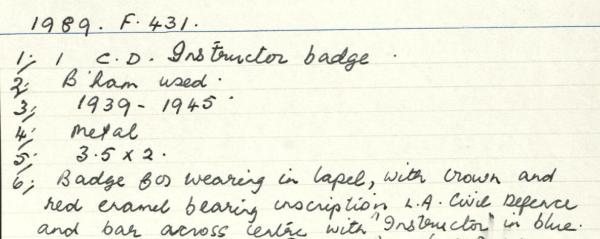 1989. F. 431.
1; 1 C.D. Instructor badge.
2; B'ham used.
3; 1939 - 1945.
4; Metal
5; 3.5 x 2.
6; Badge for wearing in lapel, with crown and
red enamel bearing inscription L.A. Civil Defence
and bar across centre with "Instructor" in blue.